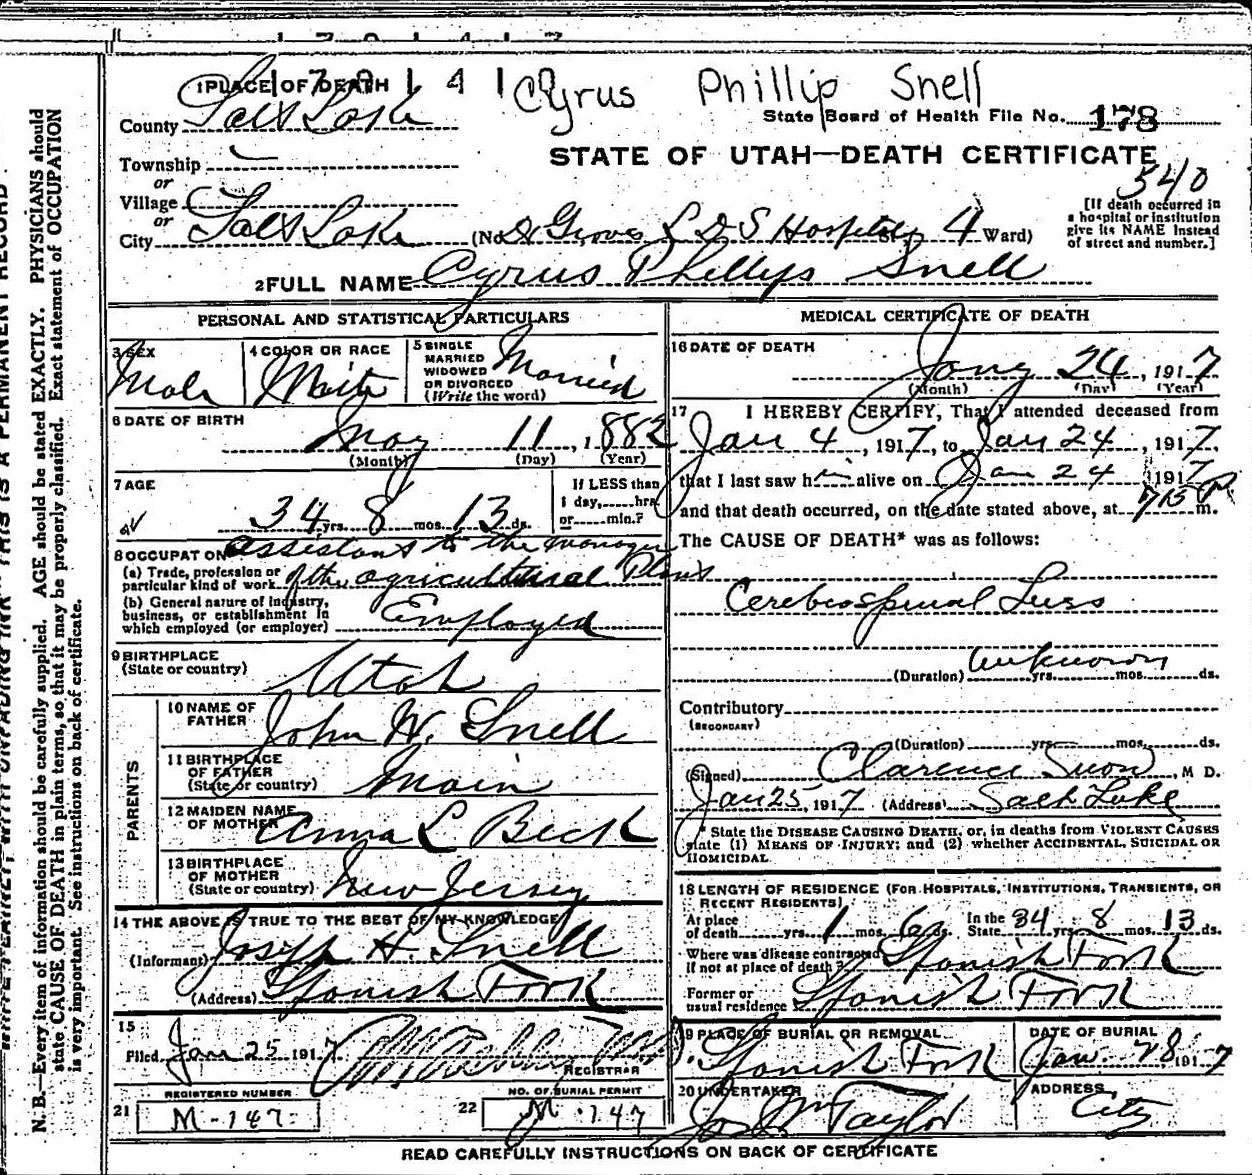 1 7 0 1 4 1 2
1 PLACE OF DEATH
Cyrus Phillip Snell
County Salt Lake
State Board of Health File No. 178
Township
STATE OF UTAH—DEATH CERTIFICATE
or
540
Village
or
City Salt Lake (No. Dr Groves L D S Hospital St. 4 Ward)
[If death occurred in
a hospital or institution
give its NAME instead
of street and number.]
2 FULL NAME Cyrus Phillyps Snell
PERSONAL AND STATISTICAL PARTICULARS
3 SEX Male
4 COLOR OR RACE White
5 SINGLE
MARRIED
WIDOWED
OR DIVORCED
(Write the word) Married
6 DATE OF BIRTH
May 11, 1882
(Month) (Day) (Year)
7 AGE
34 yrs. 8 mos. 13 ds.
If LESS than
1 day,......hrs.
or......min.?
8 OCCUPATION assistant to the manager
(a) Trade, profession or
particular kind of work of the agricultural Plant
(b) General nature of industry,
business, or establishment in
which employed (or employer) Employed
9 BIRTHPLACE
(State or country) Utah
PARENTS
10 NAME OF
FATHER John W. Snell
11 BIRTHPLACE
OF FATHER
(State or country) Main
12 MAIDEN NAME
OF MOTHER Anna L Beck
13 BIRTHPLACE
OF MOTHER
(State or country) New Jersey
14 THE ABOVE IS TRUE TO THE BEST OF MY KNOWLEDGE
(Informant) Joseph H. Snell
(Address) Spanish Fork
15
Filed Jan 25 1917
REGISTRAR
REGISTERED NUMBER
21 M-147
NO. OF BURIAL PERMIT
22 M-147
MEDICAL CERTIFICATE OF DEATH
16 DATE OF DEATH
Jany 24, 1917
(Month) (Day) (Year)
17 I HEREBY CERTIFY, That I attended deceased from
Jan 4, 1917, to Jan 24, 1917,
that I last saw him alive on Jan 24 1917
and that death occurred, on the date stated above, at 7 15 P m.
The CAUSE OF DEATH* was as follows:
Cerebrospinal Lues
(Duration) unknown yrs. mos. ds.
Contributory
(SECONDARY)
(Duration) yrs. mos. ds.
(Signed) Clarence Snow, M D.
Jan 25, 1917 (Address) Salt Lake
* State the DISEASE CAUSING DEATH, or, in deaths from VIOLENT CAUSES
state (1) MEANS OF INJURY; and (2) whether ACCIDENTAL, SUICIDAL OR
HOMICIDAL.
18 LENGTH OF RESIDENCE (FOR HOSPITALS, INSTITUTIONS, TRANSIENTS, OR
RECENT RESIDENTS)
At place
of death yrs. 1 mos. 6 ds. In the
State 34 yrs. 8 mos. 13 ds.
Where was disease contracted
if not at place of death? Spanish Fork
Former or
usual residence Spanish Fork
19 PLACE OF BURIAL OR REMOVAL
Spanish Fork
DATE OF BURIAL
Jan. 28 1917
20 UNDERTAKER
Jos Wm Taylor
ADDRESS
City
READ CAREFULLY INSTRUCTIONS ON BACK OF CERTIFICATE
N. B.—Every item of information should be carefully supplied. AGE should be stated EXACTLY. PHYSICIANS should
state CAUSE OF DEATH in plain terms, so that it may be properly classified. Exact statement of OCCUPATION
is very important. See instructions on back of certificate.
THIS IS A PERMANENT RECORD